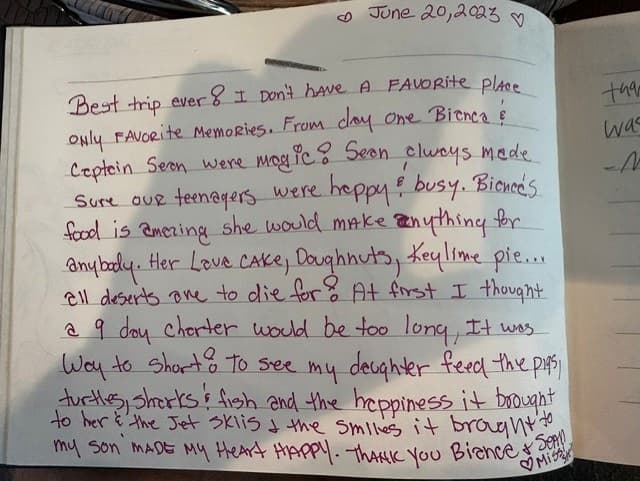 ♡ June 20, 2023 ♡
Best trip ever! I Don't have A FAVORite plAce
ONly FAVORite MemoRies. From day one Bianca &
Captain Sean were magic! Sean always made
Sure our teenagers were happy & busy. Bianca's
food is amazing she would make anything for
anybody. Her Love CAke, Doughnuts, Key lime pie...
all deserts are to die for! At first I thought
a 9 day charter would be too long, It was
Way to short! To see my daughter feed the pigs,
turtles, sharks & fish and the happiness it brought
to her & the Jet Skiis & the smiles it brought to
my son MADE My HeArt HAPPY. THANK You Bianca & Sean
♡
was